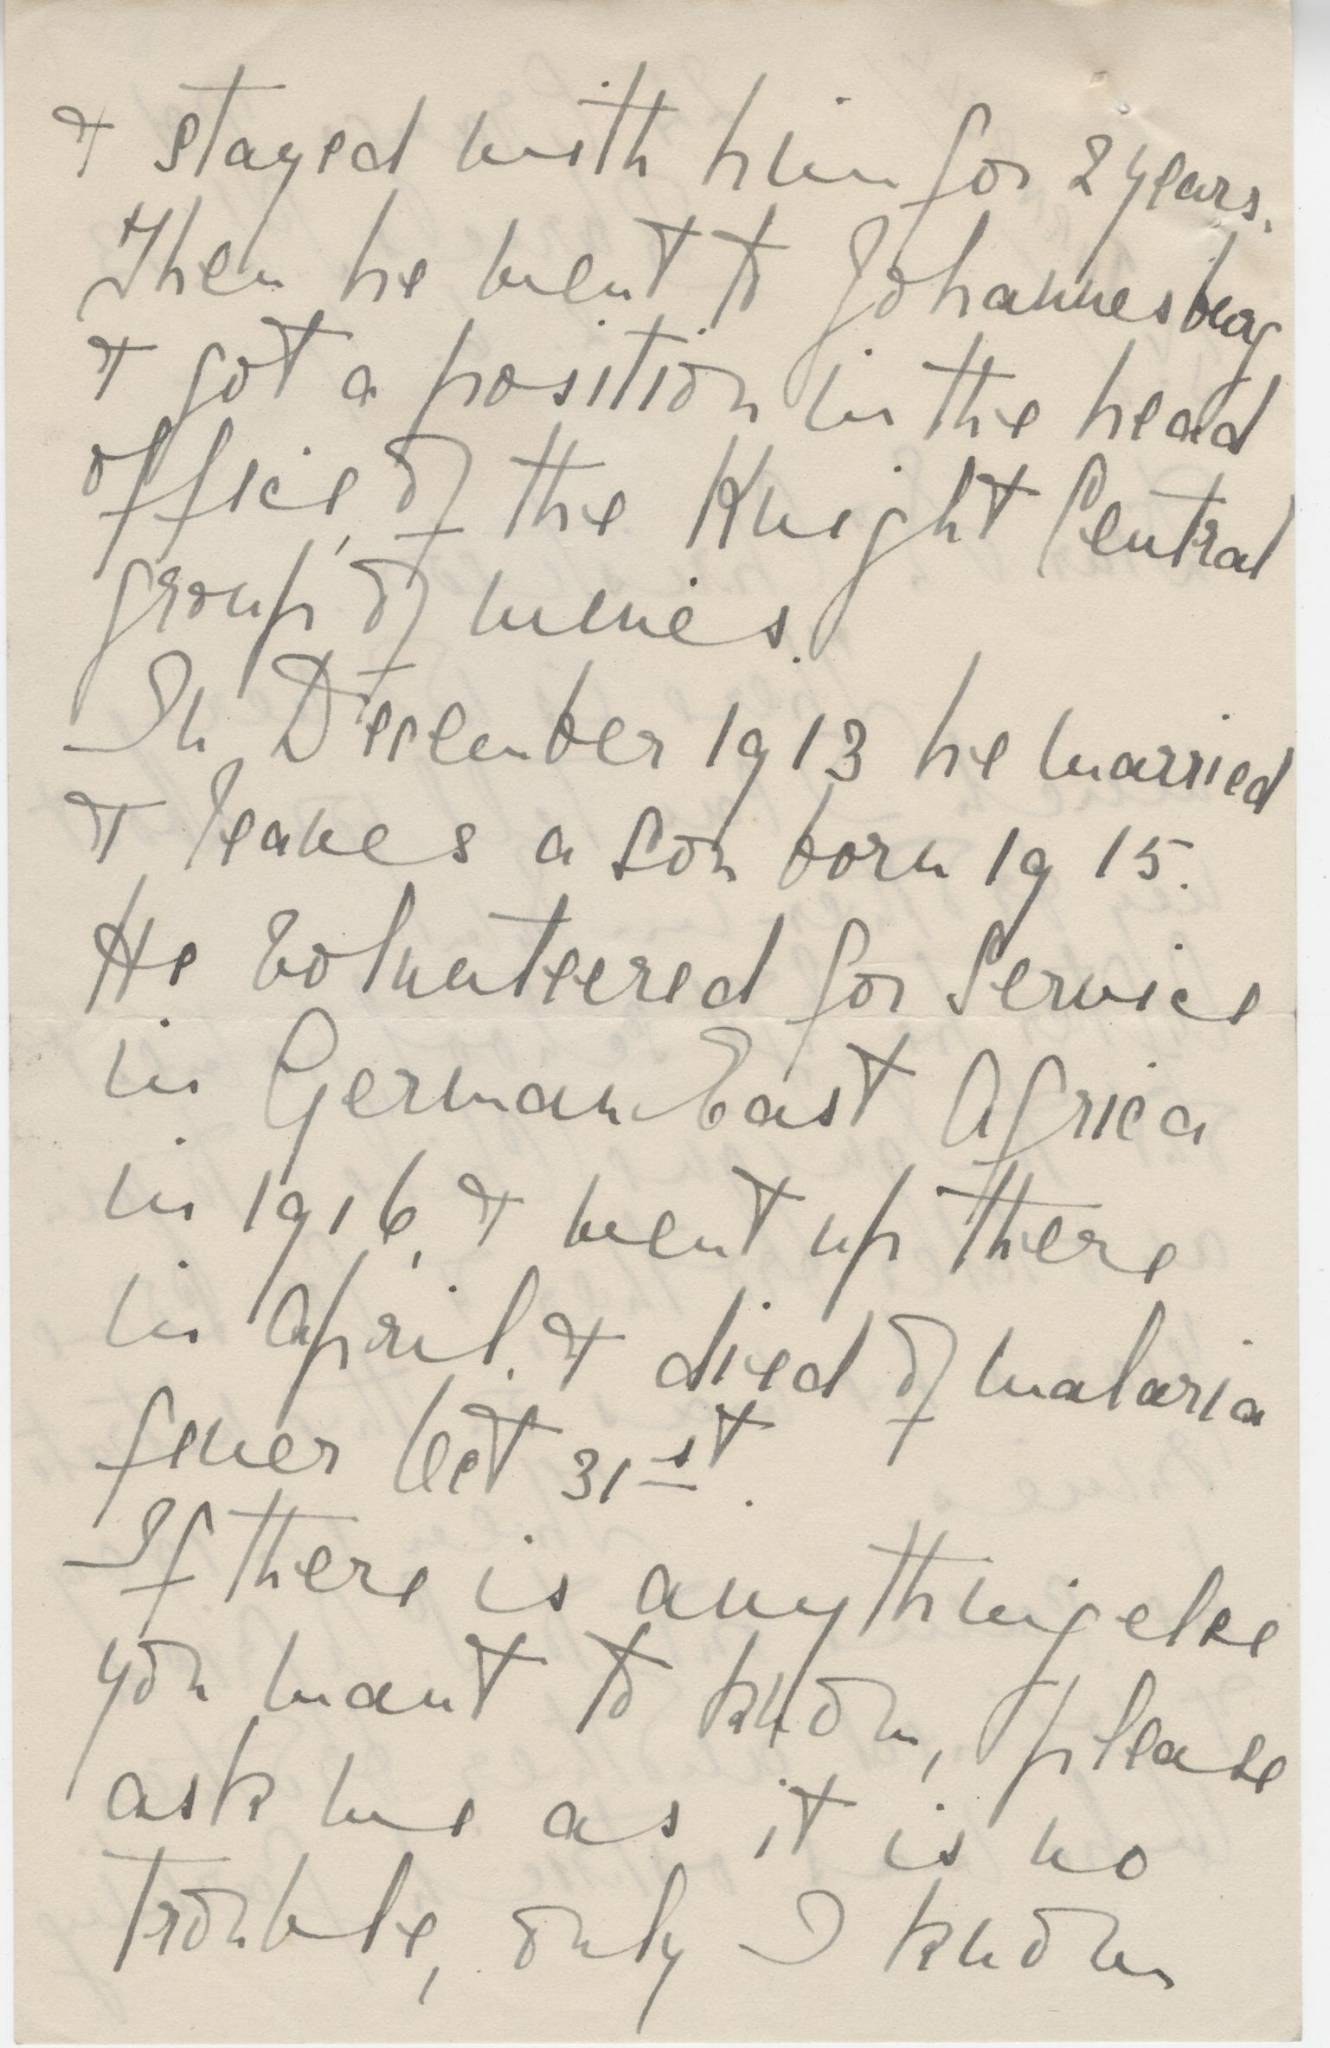 & stayed with him for 2 years.
Then he went to Johannesburg
& got a position in the head
office, of the Knight Central
group of mines.
In December 1913 he married
& leaves a son born 1915.
He volunteered for Service
in German East Africa
in 1916, & went up there
in April. & died of malaria
fever Oct 31st.
If there is anything else
you want to know, please
ask me as it is no
trouble, only I know